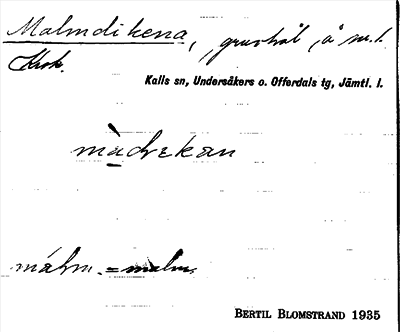 Malmdikena, gruvhål, å nr. 1.
Krok.
Kalls sn, Undersåkers o. Offerdals tg, Jämtl. l.
màdrekan
máhrn. = malm.
BERTIL BLOMSTRAND 1935